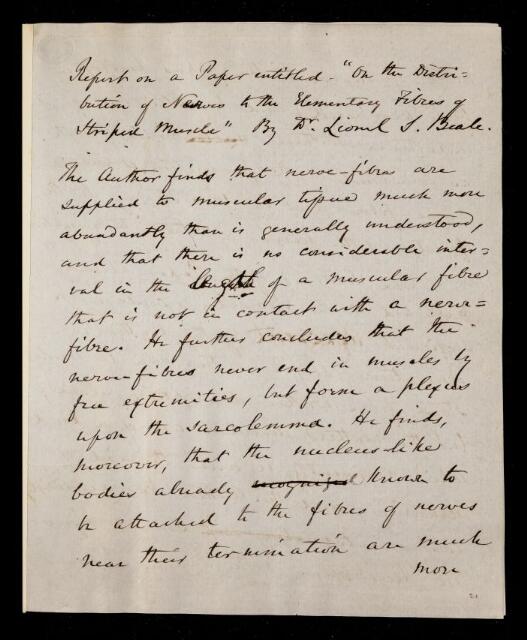 Report on a Paper entitled - "On the Distri-
bution of Nerves to the Elementary Fibres of
Striped Muscle" By Dr. Lionel S. Beale.
The Author finds that nerve-fibres are
supplied to muscular tissue much more
abundantly than is generally understood,
and that there is no considerable inter-
val in the length of a muscular fibre
that is not in contact with a nerve-
fibre. He further concludes that the
nerve-fibres never end in muscles by
free extremities, but form a plexus
upon the sarcolemma. He finds,
moreover, that the nucleus-like
bodies already recognized known to
be attached to the fibres of nerves
near their termination are much
more
21